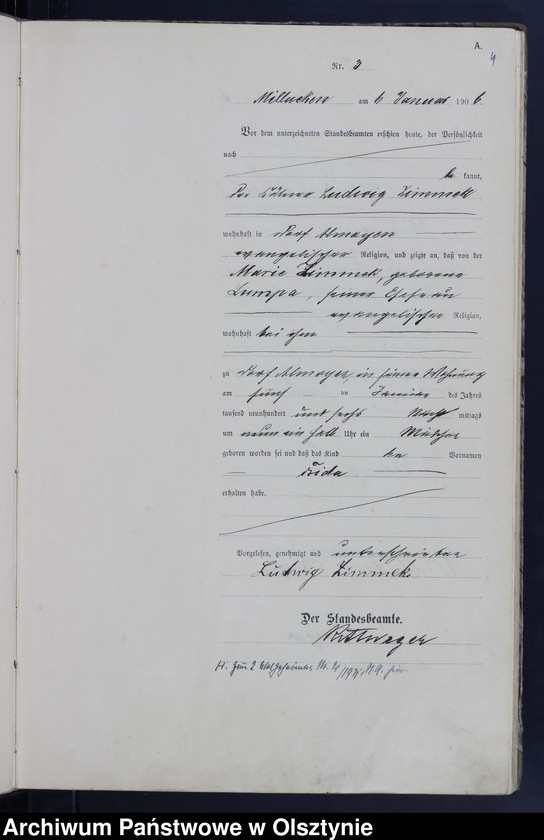 A.
4
Nr. 3
Millucken am 6 Januar 1906.
Vor dem unterzeichneten Standesbeamten erschien heute, der Persönlichkeit
nach
be kannt,
der Ludwig Zimmek
wohnhaft in Dorf Almoyen
evangelischer Religion, und zeigte an, daß von der
Marie Zimmek, geborene
Lumpa, seiner Ehefrau
evangelischer Religion,
wohnhaft bei ihm
zu Dorf Almoyen, in seiner Wohnung
am fünf ten Januar des Jahres
tausend neunhundert und sechs Nach mittags
um neun ein halb Uhr ein Mädchen
geboren worden sei und daß das Kind den Vornamen
Frida
erhalten habe.
Vorgelesen, genehmigt und unterschrieben
Ludwig Zimmek.
Der Standesbeamte.
H. Zum 2
Archiwum Państwowe w Olsztynie